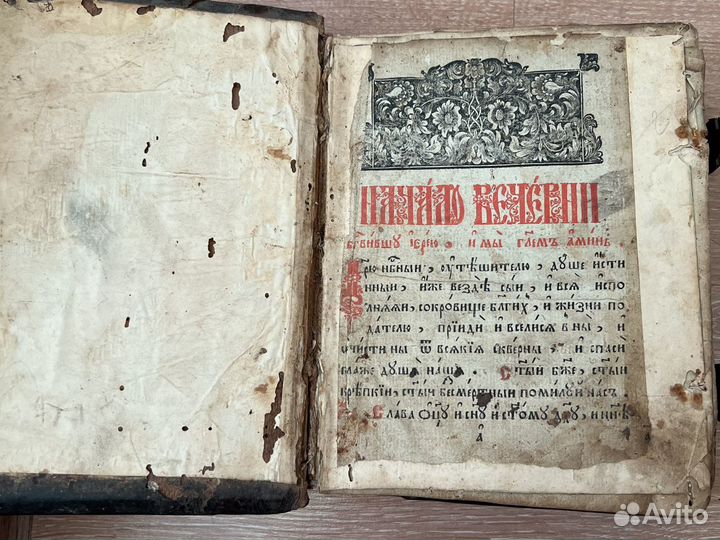 НАЧА́ЛО ВЕЧЕ́РНИ
бг҃ви́вшу і҆ере́ю , и҆ мы̀ гл҃емъ а҆ми́нь .
Цр҃ю нб҃ныи , оу҆тѣ́шителю , ду́ше и҆́сти
нныи , и҆́же вездѣ̀ сы́и , и҆ всѧ̀ и҆спо
лнѧ́ѧи , сокро́вище бл҃ги́хъ , и҆ жи́зни по
да́телю , прїидѝ и҆ всели́сѧ в ны̀ , и҆
ѡ҆чи́сти ны̀ ѿ всѧ́кїѧ скве́рны и҆ спасѝ
бл҃же ду́шѧ на́шѧ . Ст҃ы́и бж҃е , ст҃ы́и
крѣ́пкїи , ст҃ы́и безсме́ртныи поми́луи на́съ .
Сла́ва ѻ҆ц҃у̀ и҆ сн҃у и҆ ст҃о́му дх҃у , и҆ нн҃ѣ
а҃
Avito